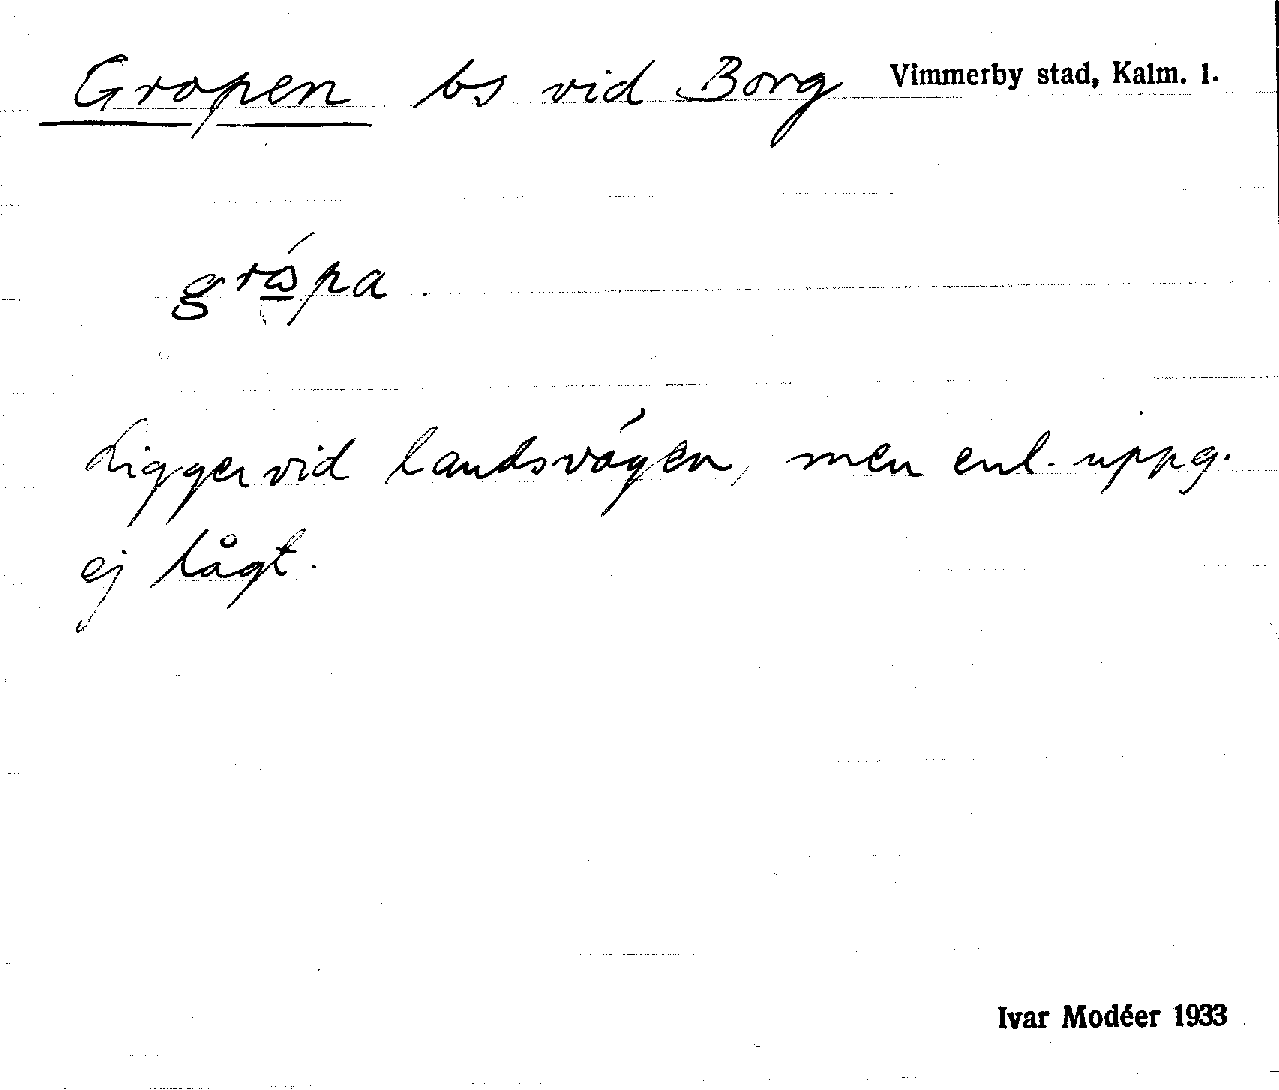 Gropen bs vid Borg Vimmerby stad, Kalm. l.
grópa.
Ligger vid landsvägen, men enl. uppg.
ej lågt.
Ivar Modéer 1933